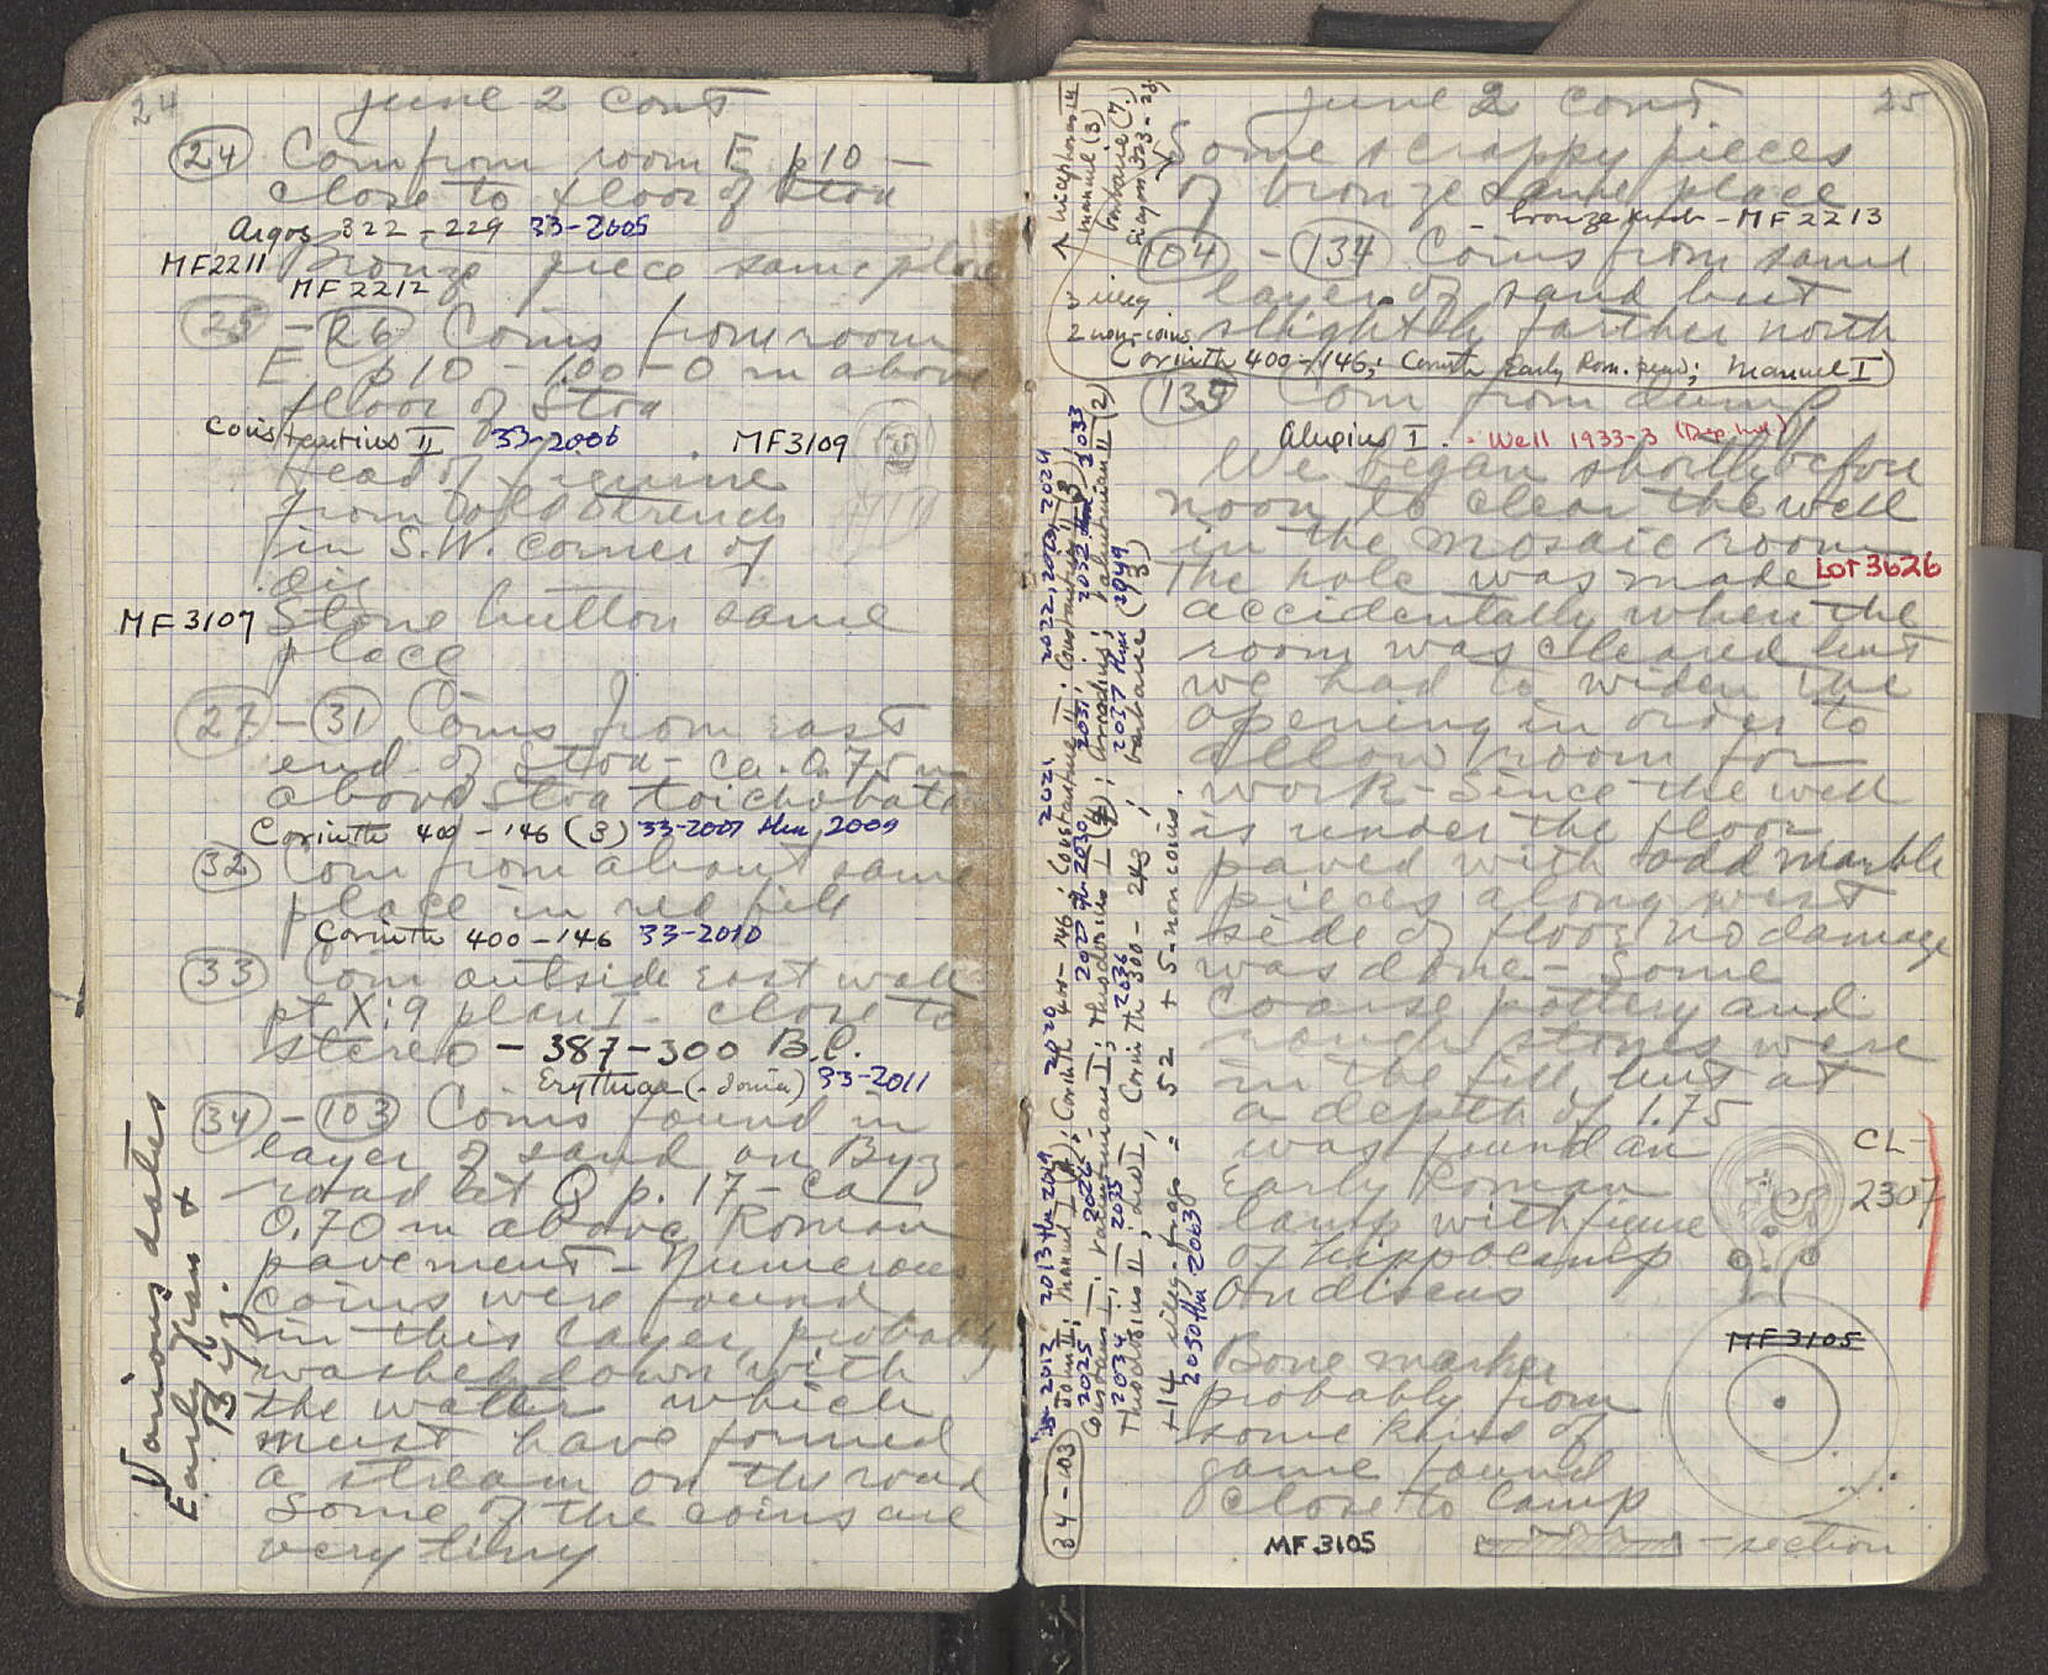 24
June 2 cont
(24) Coin from room E p10 –
close to floor of Stoa
Argos 322 – 229 33-2005
MF2211 Bronze piece same place
MF 2212
(25) – (26) Coins from room
E p10 – 1.00 – 0 m above
floor of Stoa
Constantius II 33-2006 MF3109
Head of figurine
from trench
in S.W. corner of
dig
MF 3107 Stone button same
place
(27) – (31) Coins from east
end of Stoa – ca. 0.75 m
above Stoa toichobate
Corinth 400 – 146 (3) 33-2007 thru 2009
(32) Coin from about same
place in red fill
Corinth 400 – 146 33-2010
(33) Coin outside east wall
pt X:9 plan I – close to
stereo – 387 – 300 B.C.
Erythrae (- Ionia) 33-2011
(34) – (103) Coins found in
layer of sand on Byz.
road at Q p. 17 – ca
0.70 m above Roman
pavement – Numerous
coins were found
in this layer probably
washed down with
the water which
must have formed
a stream on the road
Some of the coins are
very tiny
Various dates
Early Rom +
Byz.
June 2 cont. 25
Some scrappy pieces
of bronze same place
– bronze – MF 2213
(104) – (134) Coins from same
layer of sand but
slightly farther north
Corinth 400 – 146; Corinth Early Rom. ; Manuel I
↑ Nicephorus
Manuel (3)
barbaric (7.)
Sicyon 323 – 251
3 illeg
2 non-coins
(135) Coin from dump
Alexius I . - Well 1933-3
We began shortly before
noon to clear the well
in the mosaic room
The hole was made LOT 3626
accidentally when the
room was cleared but
we had to widen the
opening in order to
allow room for
work – Since the well
is under the floor
paved with odd marble
pieces along west
side of floor no damage
was done – Some
coarse pottery and
rough stones were
in the fill but at
a depth of 1.75
was found an
Early Roman
lamp with figure
of hippocamp
on discus
CL-
2307
Bone marker
probably from
some kind of
game found
close to lamp
MF 3105
MF 3105
– section
(34 – 103)
33-2012 2013 thru 2019 2020 2021 2022, 2023, 2024
John II; Manuel I; Corinth 400 – 146; Constantine II.
2025 2026 2027 2030 2031 2032 2033
Constans I; Valentinian I; Theodosius I; Arcadius; Valentinian II (2)
2034 2035 2036 2037 thru 2049
Theodosius II; Leo I; Corinth 300 – 243; barbaric (13)
+14 illeg. frags = 52 + 5 - non coins.
2050 thru 2063